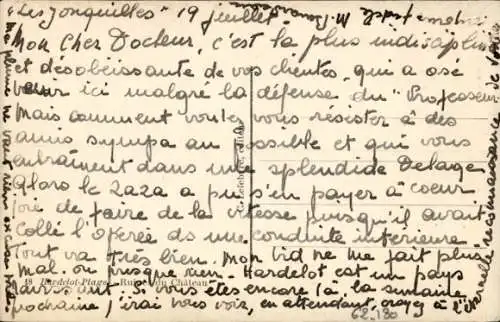 "Les Jonquilles" 19 juillet.
Mon cher Docteur, c'est la plus indisciplinée
et désobéissante de vos clientes, qui a osé
venir ici malgré la défense du "Professeur
Mais comment voulez vous résister à des
amis sympa au possible et qui vous
entraînent dans une splendide Delage
Alors le zaza a pu s'en payer à coeur
joie de faire de la vitesse puisqu'il avait
collé l'opérée ds une conduite intérieure.
Tout va très bien. Mon bid ne me fait plus
mal. ou presque rien. Hardelot est un pays
18 Hardelot-Plage - Ruines du Château
ravissant. Si vous êtes encore là la semaine
prochaine j'irai vous voir, en attendant, croyez à l'éternelle reconnaissance de votre
Ma plume ne vaut rien excusez moi.
62.180